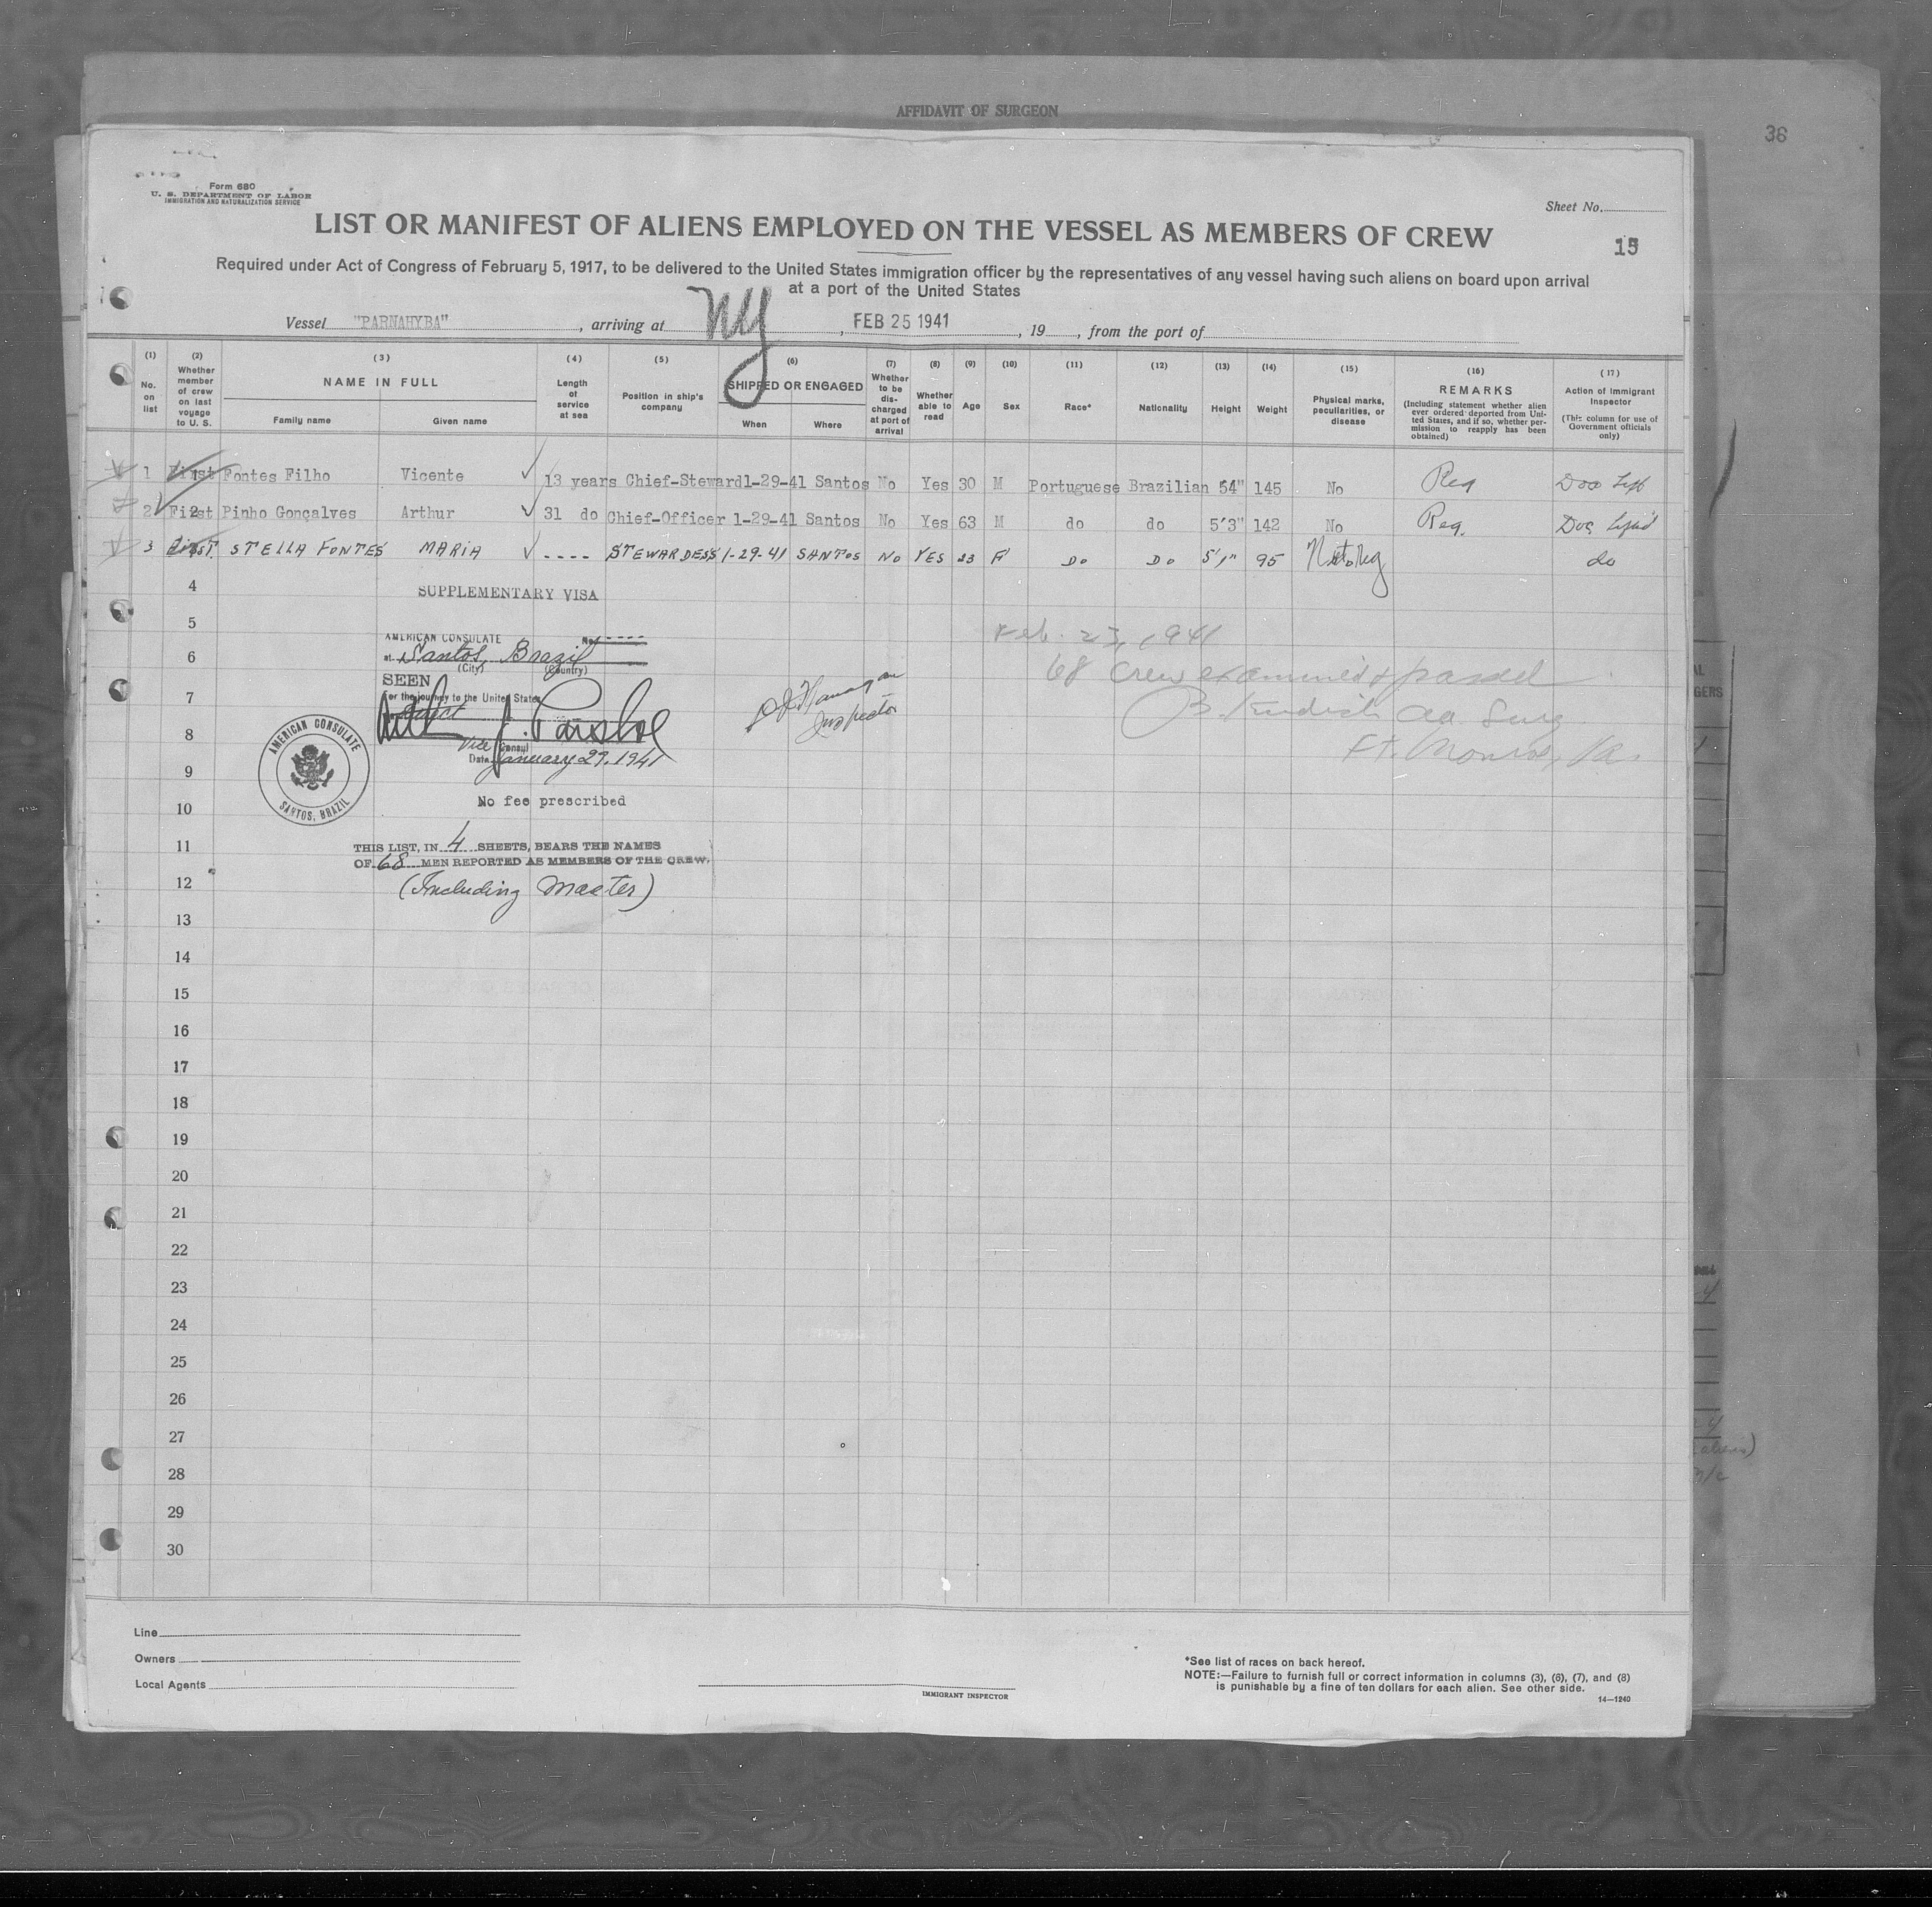 AFFIDAVIT OF SURGEON
36
Form 680
U. S. DEPARTMENT OF LABOR
IMMIGRATION AND NATURALIZATION SERVICE
Sheet No.
LIST OR MANIFEST OF ALIENS EMPLOYED ON THE VESSEL AS MEMBERS OF CREW
15
Required under Act of Congress of February 5, 1917, to be delivered to the United States immigration officer by the representatives of any vessel having such aliens on board upon arrival
at a port of the United States
Vessel "PARNAHYBA", arriving at NY, FEB 25 1941, 19, from the port of
(1) No. on list
(2) Whether member of crew on last voyage to U. S.
(3) NAME IN FULL Family name Given name
(4) Length of service at sea
(5) Position in ship's company
(6) SHIPPED OR ENGAGED When Where
(7) Whether to be discharged at port of arrival
(8) Whether able to read
(9) Age
(10) Sex
(11) Race*
(12) Nationality
(13) Height
(14) Weight
(15) Physical marks, peculiarities, or disease
(16) REMARKS (Including statement whether alien ever ordered deported from United States, and if so, whether permission to reapply has been obtained)
(17) Action of Immigrant Inspector (This column for use of Government officials only)
1 First Fontes Filho Vicente 13 years Chief-Steward 1-29-41 Santos No Yes 30 M Portuguese Brazilian 54" 145 No Reg
2 First Pinho Gonçalves Arthur 31 do Chief-Officer 1-29-41 Santos No Yes 63 M do do 5'3" 142 No Reg.
3 First STELLA FONTES MARIA ---- STEWARDESS 1-29-41 SANTOS NO YES 23 F DO DO 5'1" 95 do
4
SUPPLEMENTARY VISA
5
AMERICAN CONSULATE No. ----
Feb. 23, 1941
6
at Santos, Brazil
(City) (Country)
68 crew examined & passed
SEEN
7
For the journey to the United States
Inspector
8
Vice Consul
Ft. Monroe, Va.
Date January 29, 1941
AMERICAN CONSULATE
SANTOS, BRAZIL
9
No fee prescribed
10
11
THIS LIST, IN 4 SHEETS, BEARS THE NAMES
OF 68 MEN REPORTED AS MEMBERS OF THE CREW.
12
(Including Master)
13
14
15
16
17
18
19
20
21
22
23
24
25
26
27
28
29
30
Line
Owners
Local Agents
IMMIGRANT INSPECTOR
*See list of races on back hereof.
NOTE:—Failure to furnish full or correct information in columns (3), (6), (7), and (8)
is punishable by a fine of ten dollars for each alien. See other side.
14—1240